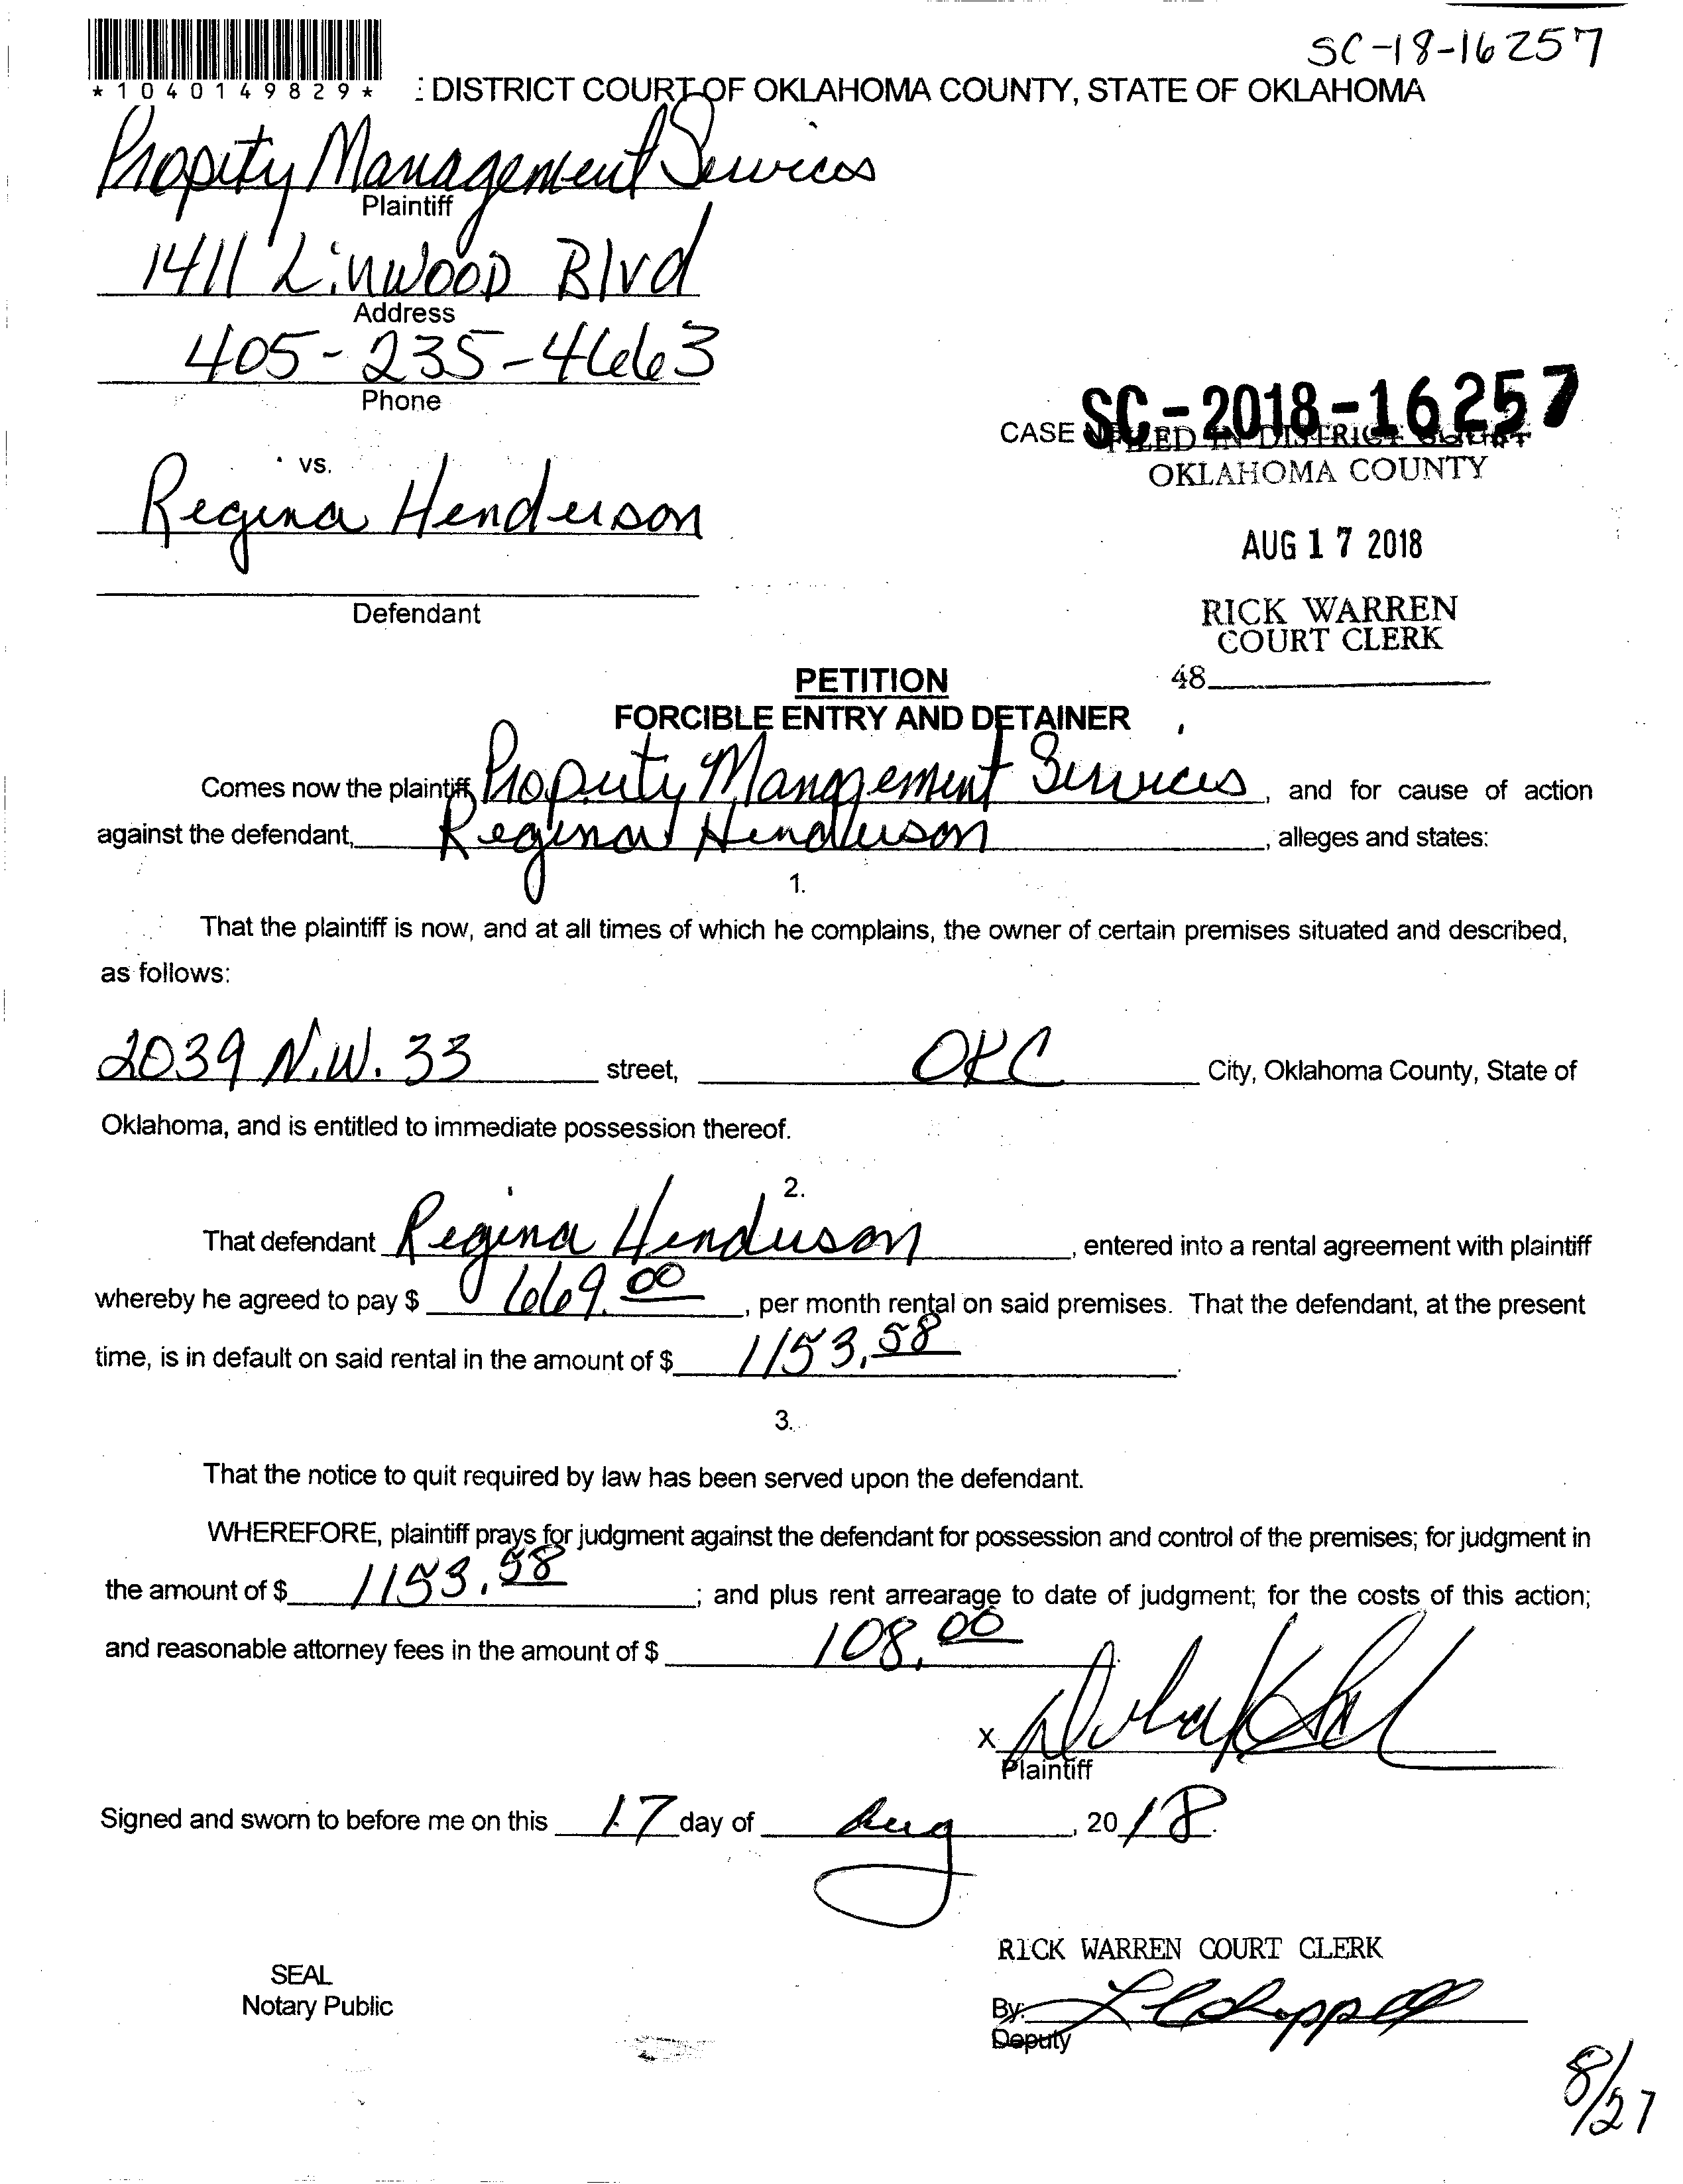 SC-18-16257
*1040149829*
: DISTRICT COURT OF OKLAHOMA COUNTY, STATE OF OKLAHOMA
Property Management Services
Plaintiff
1411 Linwood Blvd
Address
405-235-4663
Phone
SC-2018-16257
CASE
FILED IN DISTRICT COURT
OKLAHOMA COUNTY
vs.
Regina Henderson
AUG 17 2018
Defendant
RICK WARREN
COURT CLERK
48
PETITION
FORCIBLE ENTRY AND DETAINER
Comes now the plaintiff, Property Management Services, and for cause of action
against the defendant, Regina Henderson, alleges and states:
1.
That the plaintiff is now, and at all times of which he complains, the owner of certain premises situated and described,
as follows:
2039 N.W. 33 street, OKC City, Oklahoma County, State of
Oklahoma, and is entitled to immediate possession thereof.
2.
That defendant Regina Henderson, entered into a rental agreement with plaintiff
whereby he agreed to pay $ 669.00, per month rental on said premises. That the defendant, at the present
time, is in default on said rental in the amount of $ 1153.58.
3.
That the notice to quit required by law has been served upon the defendant.
WHEREFORE, plaintiff prays for judgment against the defendant for possession and control of the premises; for judgment in
the amount of $ 1153.58; and plus rent arrearage to date of judgment; for the costs of this action;
and reasonable attorney fees in the amount of $ 108.00.
X
Plaintiff
Signed and sworn to before me on this 17 day of Aug, 2018.
RICK WARREN COURT CLERK
SEAL
Notary Public
By:
Deputy
8/27